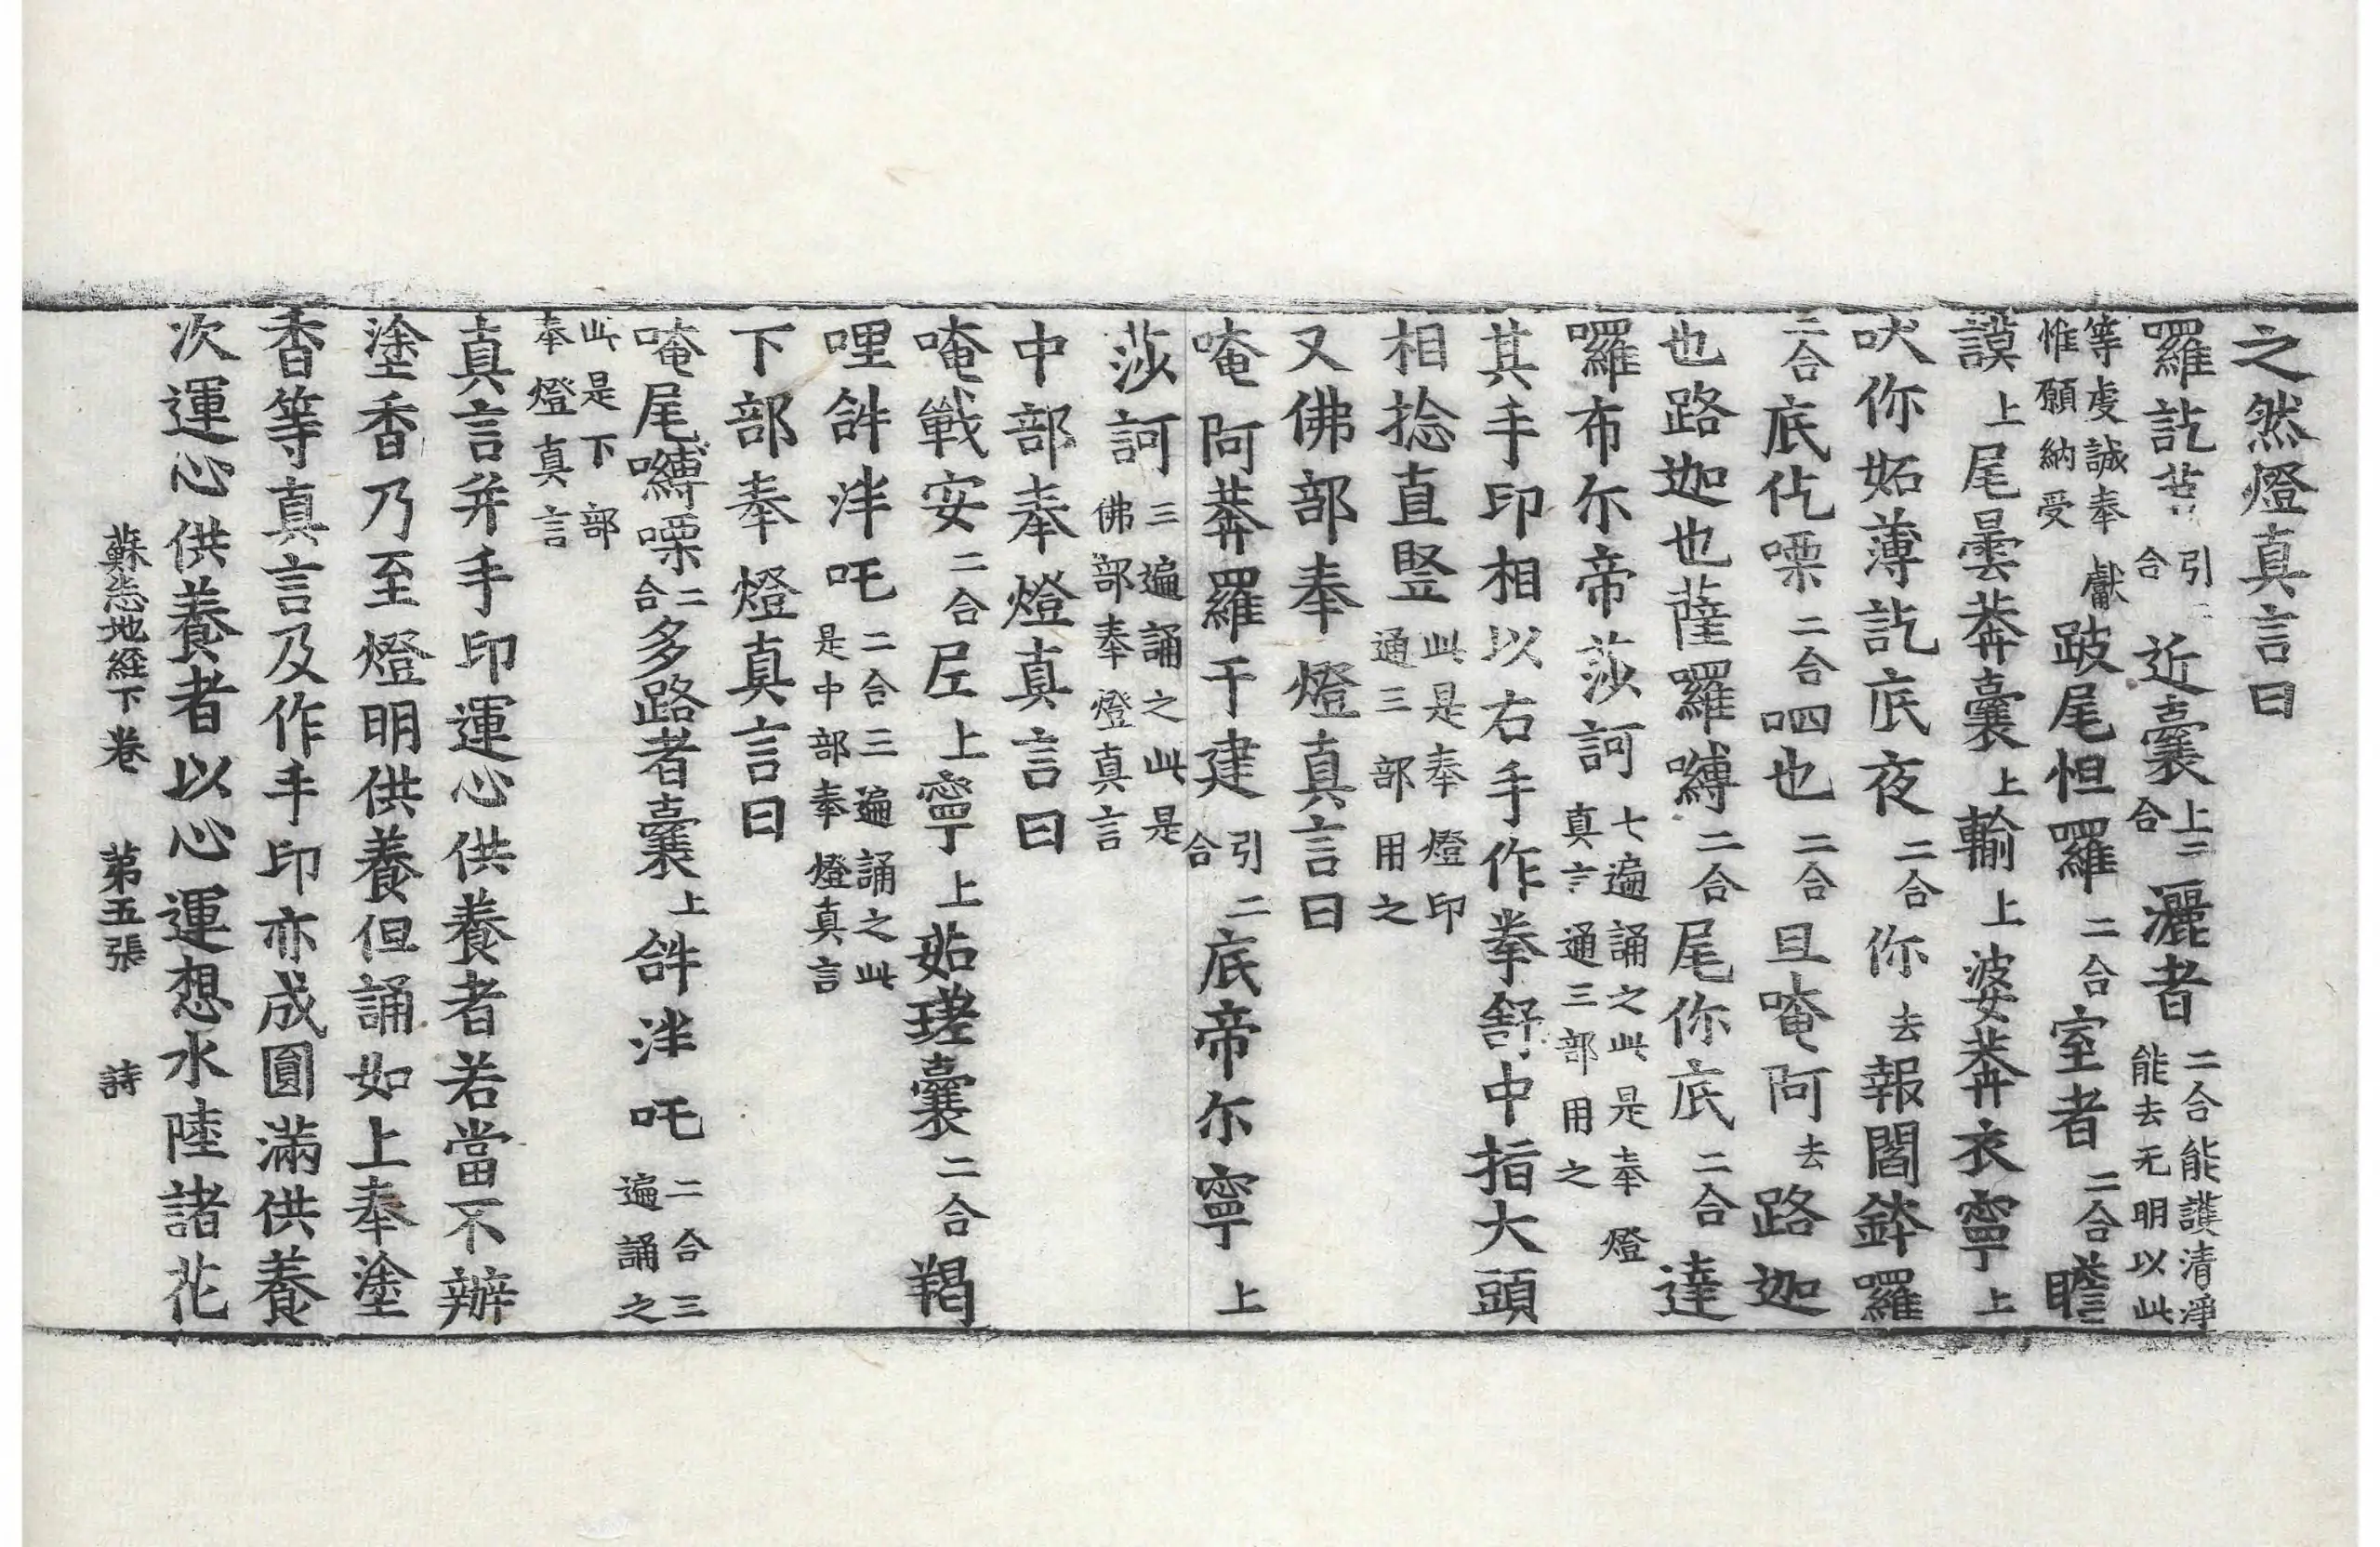 之然燈真言曰
囉訖芸引二合近囊上二合灑者二合能護清淨能去无明以此
等虔誠奉獻惟願納受跛尾怛囉二合室者二合瞻
謨上尾曇莾囊上輸上婆莾衣寧上
吠你妬薄訖底夜二合你去報閻鉢囉
二合底仡㗚二合呬也二合且唵阿去路迦
也路迦也薩囉嚩二合尾你底二合達
囉布尒帝莎訶七遍誦之此是奉燈真言通三部用之
其手印相以右手作拳舒中指大頭
相捻直竪此是奉燈印通三部用之
又佛部奉燈真言曰
唵阿莾羅干建引二合底帝尒寧上
莎訶三遍誦之此是佛部奉燈真言
中部奉燈真言曰
唵戰安二合𡰱上寧上茹瑳囊二合羯
哩𤙖泮吒二合三遍誦之此是中部奉燈真言
下部奉燈真言曰
唵尾嚩㗚二合多路者囊上𤙖泮吒二合三遍誦之
此是下部奉燈真言
真言并手印運心供養者若當不辦
塗香乃至燈明供養但誦如上奉塗
香等真言及作手印亦成圓滿供養
次運心供養者以心運想水陸諸花
蘇悉地經下卷 第五張 詩